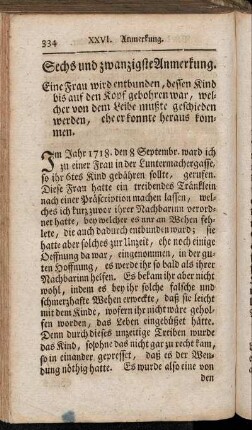 334 XXVI. Anmerkung.
Sechs und zwanzigste Anmerkung.
Eine Frau wird entbunden, dessen Kind
bis auf den Kopf gebohren war, wel-
cher von dem Leibe mußte geschieden
werden, ehe er konnte heraus kom-
men.
Im Jahr 1718. den 8 Septembr. ward ich
zu einer Frau in der Luntermachergasse,
so ihr 6tes Kind gebähren sollte, gerufen.
Diese Frau hatte ein treibendes Tränklein
nach einer Präscription machen lassen, wel-
ches ich kurz zuvor ihrer Nachbarinn verord-
net hatte, bey welcher es nur an Wehen feh-
lete, die auch dadurch entbunden ward; sie
hatte aber solches zur Unzeit, ehe noch einige
Oeffnung da war, eingenommen, in der gu-
ten Hoffnung, es werde ihr so bald als ihrer
Nachbarinn helfen. Es bekam ihr aber nicht
wohl, indem es bey ihr solche falsche und
schmerzhafte Wehen erweckte, daß sie leicht
mit dem Kinde, wofern ihr nicht wäre gehol-
fen worden, das Leben eingebüßet hätte.
Denn durch dieses unzeitige Treiben wurde
das Kind, so ohne das nicht gar zu recht kam,
so in einander gepresset, daß es der Wen-
dung nöthig hatte. Es wurde also eine von
den